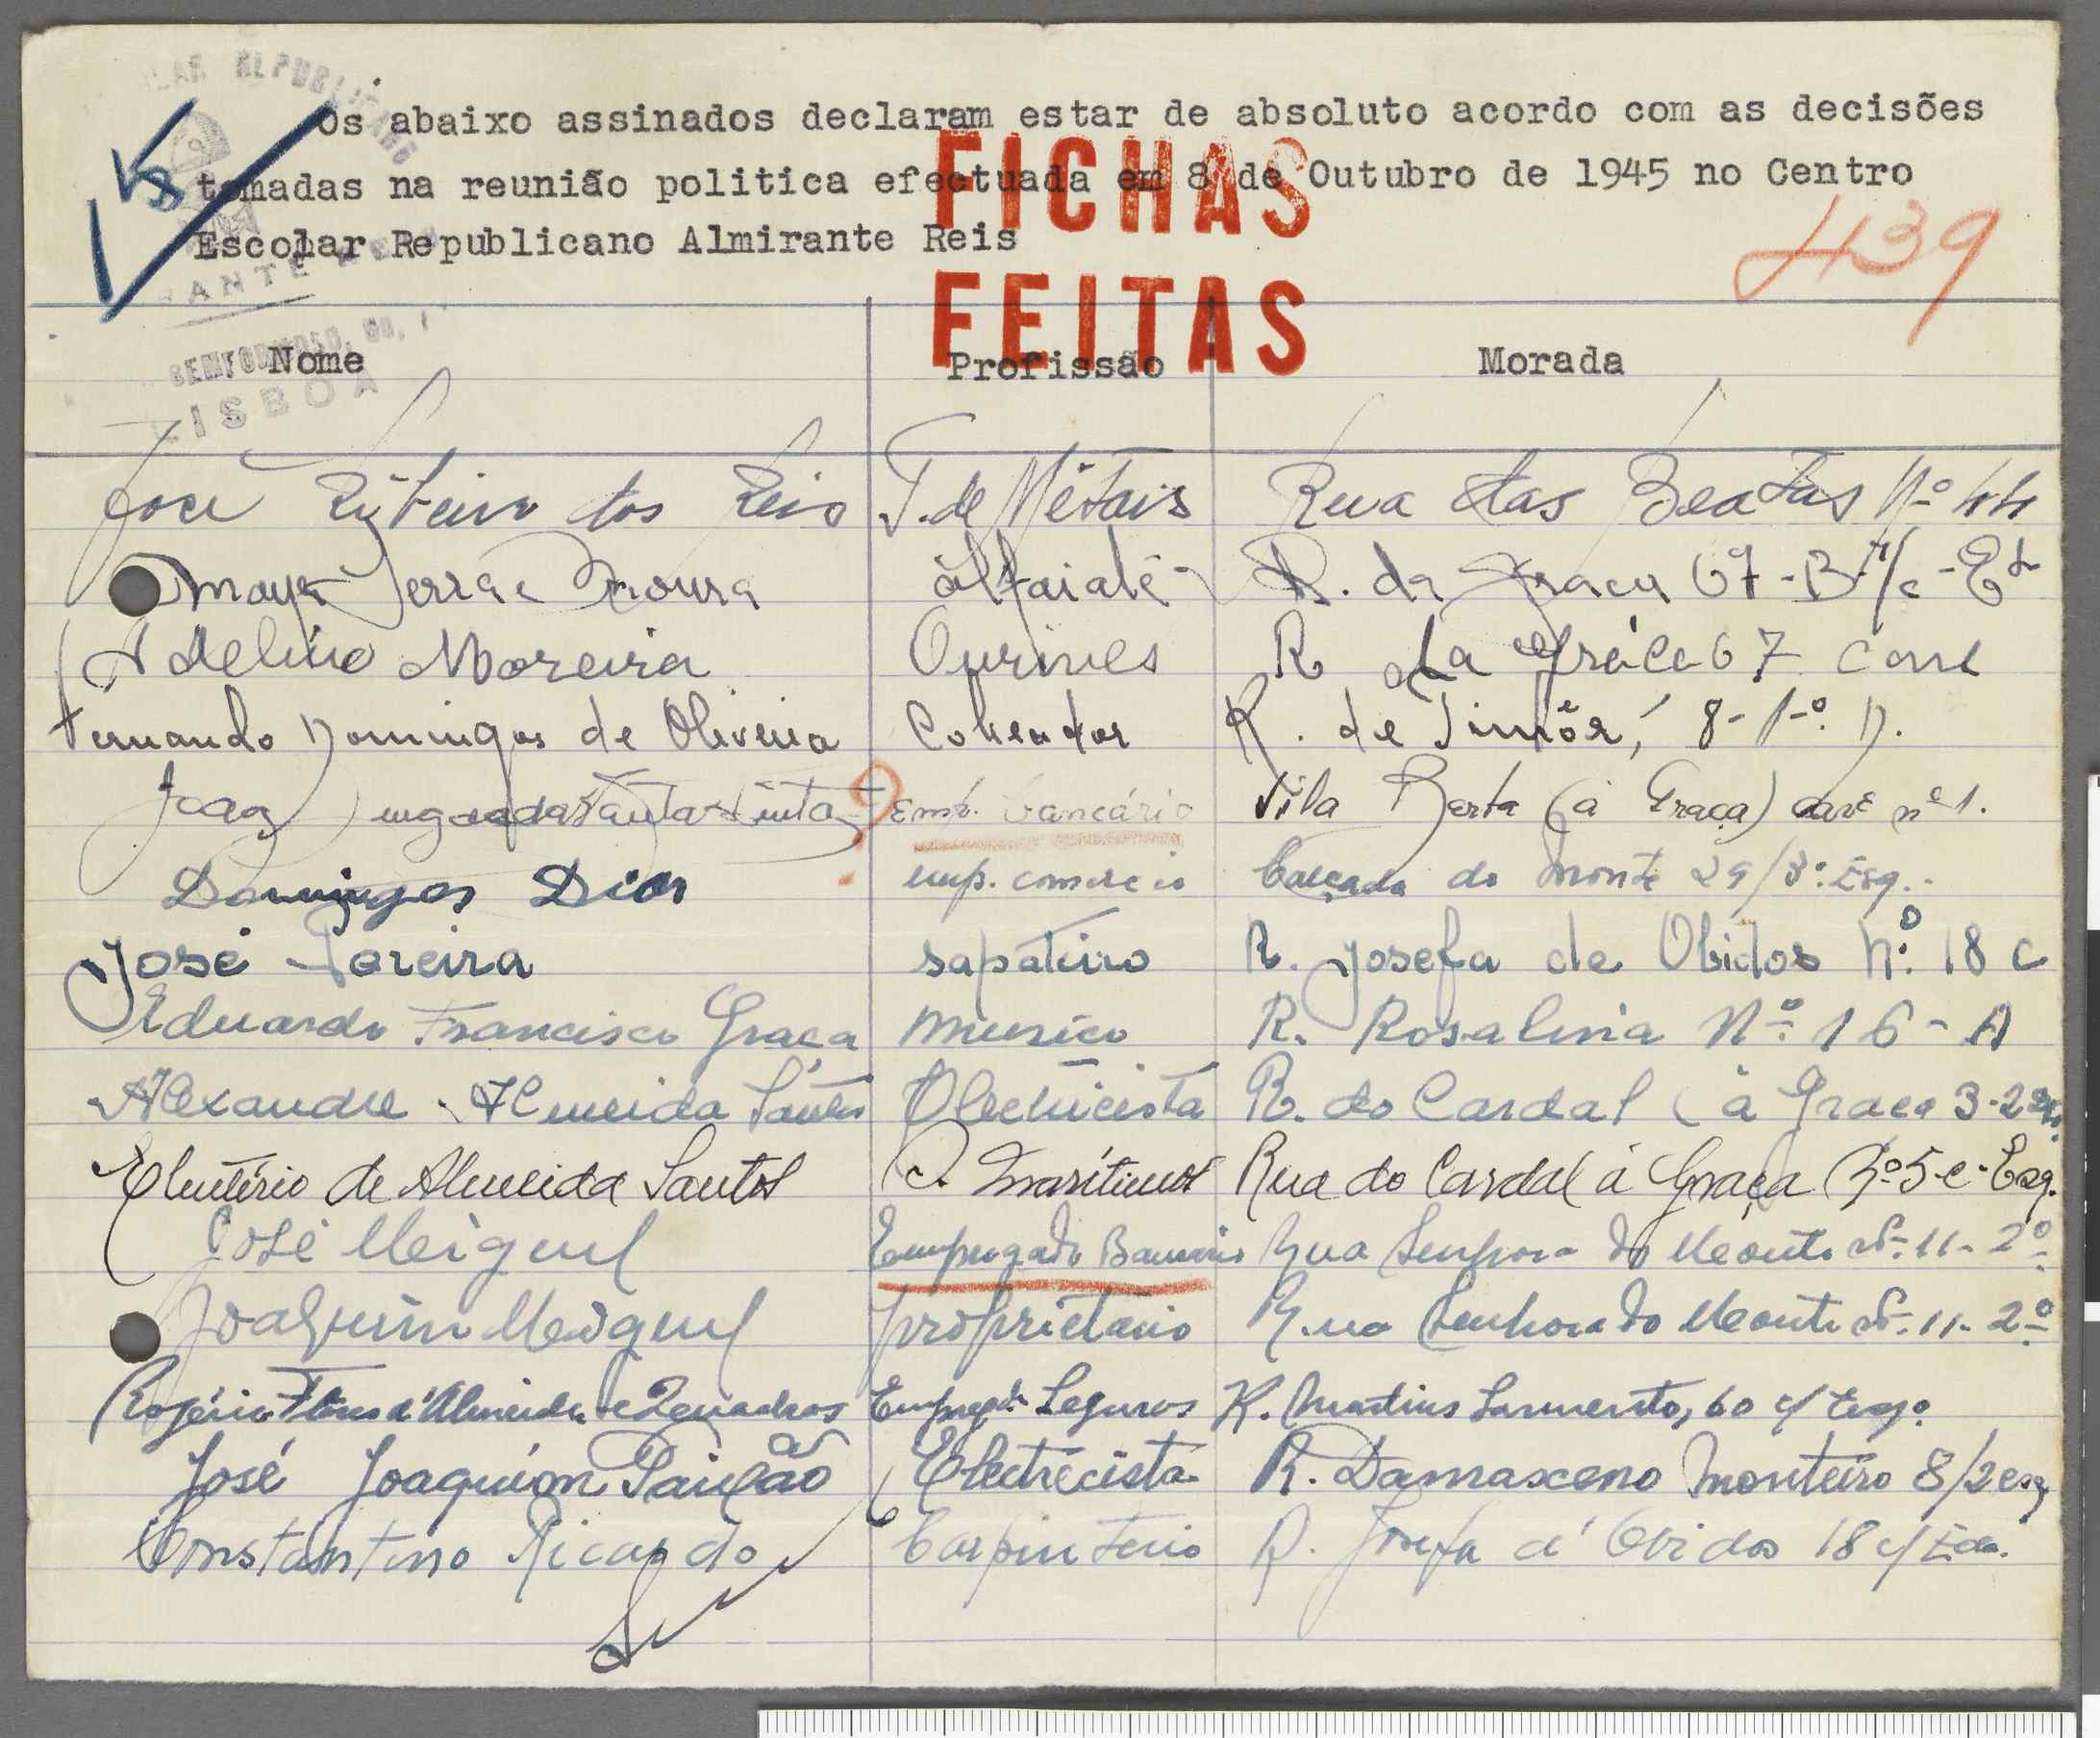 Os abaixo assinados declaram estar de absoluto acordo com as decisões
tomadas na reunião politica efectuada em 8 de Outubro de 1945 no Centro
Escolar Republicano Almirante Reis
FICHAS
FEITAS
439
LISBOA
Nome Profissão Morada
José Ribeiro dos Reis T. de Metais Rua das Beatas Nº 44
Serra e Moura alfaiate R. da Graça 67-B r/c-Et
Adelino Moreira Ourives R da Graça 67 cave
Fernando Domingos de Oliveira Cobrador R. de Timôr, 8-1-º D.
Emp. bancário Vila Berta (à Graça) cave nº 1.
Domingos Dias emp. comercio Calçada do Monte 29/3º Esq.
José Pereira sapateiro R. Josefa de Obidos Nº 18 C
Eduardo Francisco Graça musico R. Rosalina Nº 16-A
Alexandre Almeida Santos Electricista R. do Cardal (à Graça 3-2
Eleutério de Almeida Santos C. Marítimos Rua do Cardal à Graça Nº 5-c-Esq.
José Meiguel Empregado Bancário Rua Senhora do Monte Nº 11-2º
Joaquim Meiguel proprietario Rua Senhora do Monte Nº 11-2º
Rogério d'Almeida e Quadros Empregdo Seguros R. Martins Sarmento, 60 c/ Esqº
José Joaquim Paixão Electrecista R. Damasceno Monteiro 8/2 esq
Constantino Ricardo Carpinteiro R. Josefa d'Obidos 18 c/ Eda.